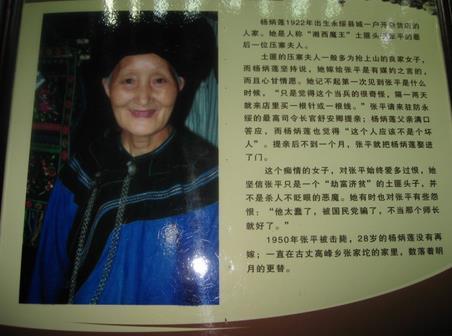 杨炳莲1922年出生永绥县城一户开杂货店的
人家。她是人称“湘西魔王”土匪头子张平的最
后一位压寨夫人。
土匪的压寨夫人一般多为抢上山的良家女子,
而杨炳莲坚持说,她嫁给张平是有媒妁之言的,
而且心甘情愿。她记不起第一次见到张平是什么
时候,“只是觉得这个当兵的很奇怪,隔一两天
就来店里买一根针或一根线。”张平请来驻防永
绥的最高司令长官舒安卿提亲;杨炳莲父亲满口
答应,而杨炳莲也觉得“这个人应该不是个坏
人”。提亲后不到一个月,张平就把杨炳莲娶进
了门。
这个痴情的女子,对张平始终爱多过恨,她
坚信张平只是一个“劫富济贫”的土匪头子,并
不是杀人不眨眼的恶魔。她有时也对张平有些怨
恨:“他太蠢了,被国民党骗了,不当那个师长
就好了。”
1950年张平被击毙,28岁的杨炳莲没有再
嫁;一直在古丈高峰乡张家坨的家里,数落着明
月的更替。